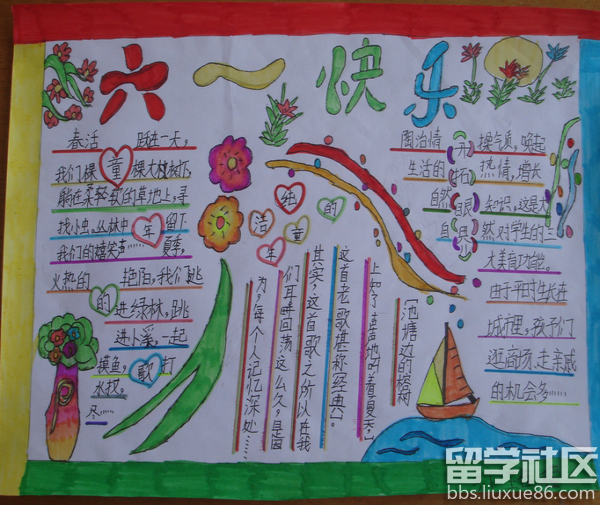 六一快乐
春活 跃进一天，
我们棵童棵大榕树下
躺在柔轻软的草地上，寻
找小虫。丛林中年留下
我们的嬉笑声……夏季，
火热的 艳阳，我们跳
的进绿林，跳
进小溪，一起
摸鱼，歌打
水仗。
冬……
给
洁的
童
年
【池塘边的榕树
上知了声声地叫着夏天，】
这首老歌堪称经典。
其实，这首歌之所以在我
们耳畔回荡这么久，是因
为，每个人记忆深处……
陶冶情开操气质，唤起
生活的拓热情，增长
自然眼知识，这是大
自界然对学生的三
大美育功能。
由于平时生长在
城市里，孩子们
逛商场、走亲戚
的机会多……
留学社区
bbs.liuxue86.com